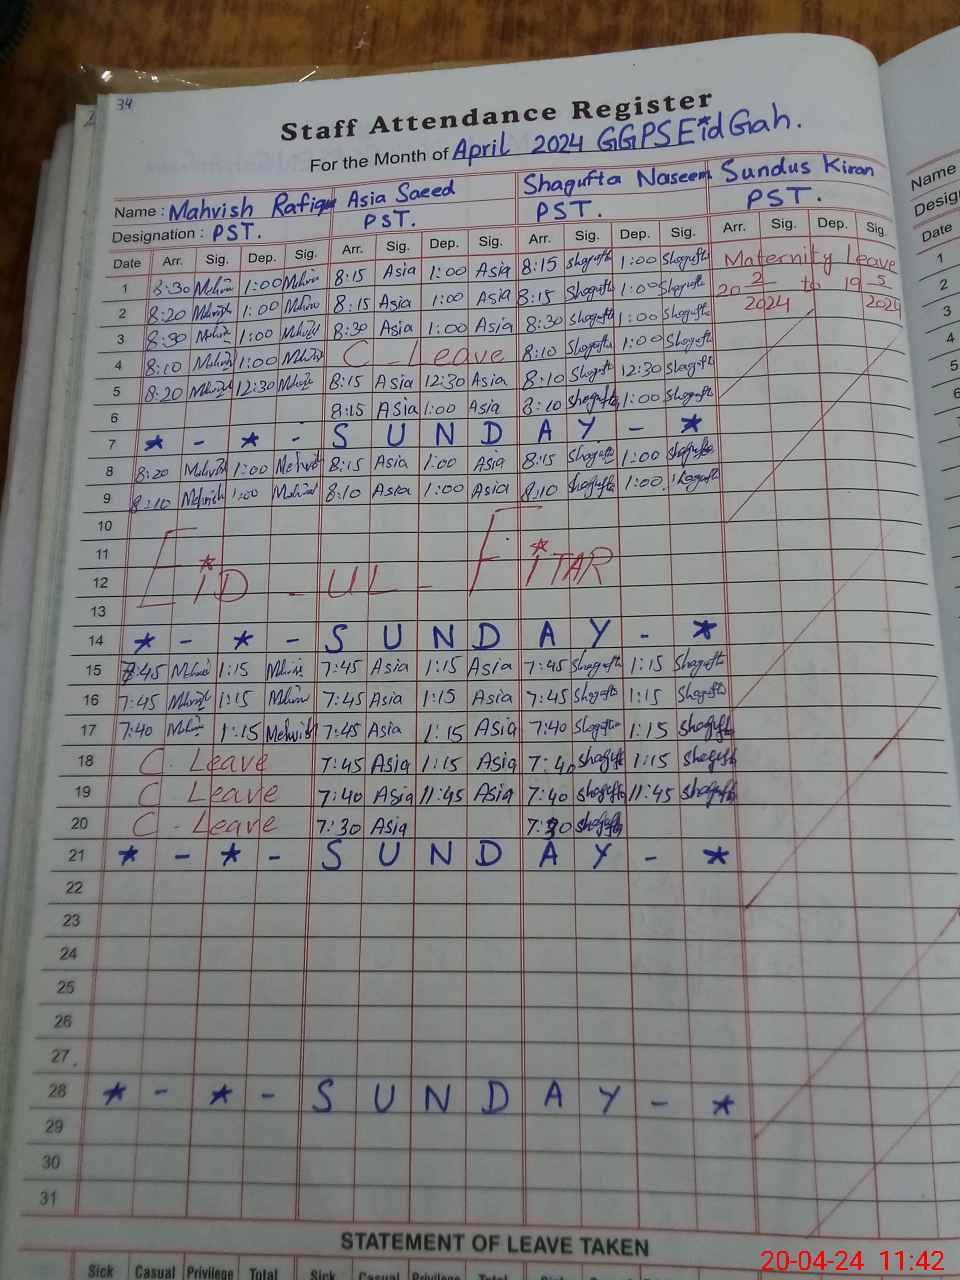 34
Staff Attendance Register
For the Month of April 2024 GGPS Eid Gah.
Name : Mahvish Rafique Asia Saeed Shagufta Naseem Sundus Kiran
Designation : PST. PST. PST. PST.
Date Arr. Sig. Dep. Sig. Arr. Sig. Dep. Sig. Arr. Sig. Dep. Sig. Arr. Sig. Dep. Sig.
1 8:30 1:00 8:15 Asia 1:00 Asia 8:15 Shagufta 1:00 Shagufta Maternity Leave
2 8:20 1:00 8:15 Asia 1:00 Asia 8:15 Shagufta 1:00 Shagufta 20 2/2024 to 19 5/2024
3 8:30 1:00 8:30 Asia 1:00 Asia 8:30 Shagufta 1:00 Shagufta
4 8:10 1:00 C - Leave 8:10 Shagufta 1:00 Shagufta
5 8:20 12:30 8:15 Asia 12:30 Asia 8:10 Shagufta 12:30 Shagufta
6 8:15 Asia 1:00 Asia 8:10 Shagufta 1:00 Shagufta
7 * - * - S U N D A Y - *
8 8:20 1:00 8:15 Asia 1:00 Asia 8:15 Shagufta 1:00 Shagufta
9 8:10 1:00 8:10 Asia 1:00 Asia 8:10 Shagufta 1:00 Shagufta
10
11
12 EiD - UL - FiTAR
13
14 * - * - S U N D A Y - *
15 7:45 1:15 7:45 Asia 1:15 Asia 7:45 Shagufta 1:15 Shagufta
16 7:45 1:15 7:45 Asia 1:15 Asia 7:45 Shagufta 1:15 Shagufta
17 7:40 1:15 7:45 Asia 1:15 Asia 7:40 Shagufta 1:15 Shagufta
18 C - Leave 7:45 Asia 1:15 Asia 7:40 Shagufta 1:15 Shagufta
19 C - Leave 7:40 Asia 11:45 Asia 7:40 Shagufta 11:45 Shagufta
20 C - Leave 7:30 Asia 7:30 Shagufta
21 * - * - S U N D A Y - *
22
23
24
25
26
27
28 * - * - S U N D A Y - *
29
30
31
STATEMENT OF LEAVE TAKEN
Sick Casual Privilege Total Sick Casual Privilege Total
Name
Date
1
2
3
4
5
6
20-04-24 11:42